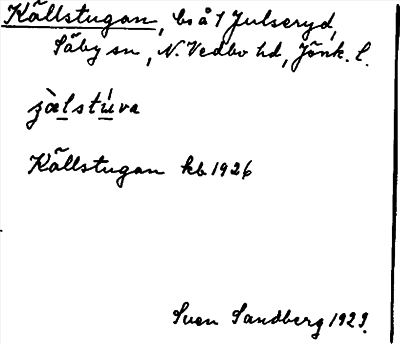 Källstugan, bs å 1 Julseryd,
Säby sn, N. Vedbo hd, Jönk. l.
Källstugan kb 1926
Sven Sandberg 1929.